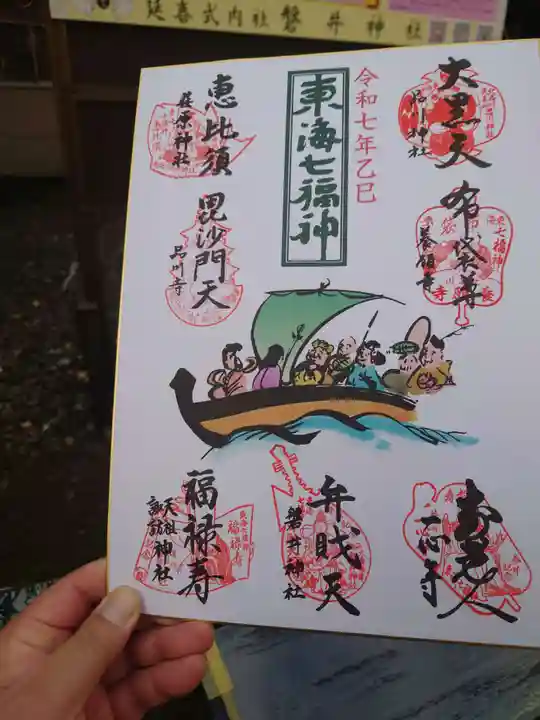 延喜式内社 磐井神社
東海七福神
令和七年乙巳
大黒天
品川神社
布袋尊
養願寺
寿老人
一心寺
恵比須
荏原神社
毘沙門天
品川寺
弁財天
磐井神社
福禄寿
天祖
諏訪神社